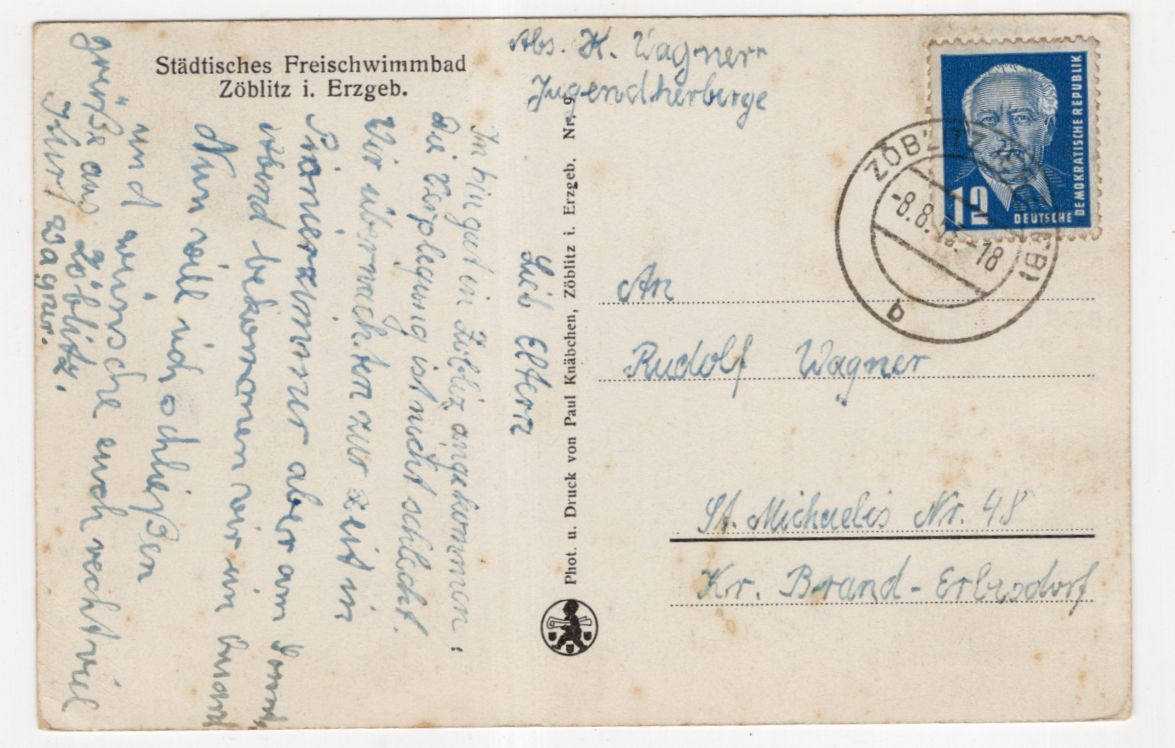 Städtisches Freischwimmbad
Zöblitz i. Erzgeb.
Abs. K. Wagner
Jugendherberge
Lieb Eltern
In bin gut in Zöblitz angekommen.
Die Verplegung ist nicht schlecht.
Wir übernachten zur Zeit in
Pionierzimmer aber am
bekommen wir ein
Nun will ich schließen
und wünsche euch recht viel
grüße aus Zöblitz.
Wagner.
Phot. u. Druck von Paul Knäbchen, Zöblitz i. Erzgeb. Nr. 9
DEUTSCHE DEMOKRATISCHE REPUBLIK
12
-8.8. -18
b
An
Rudolf Wagner
St. Michaelis Nr. 48
Kr. Brand-Erbisdorf